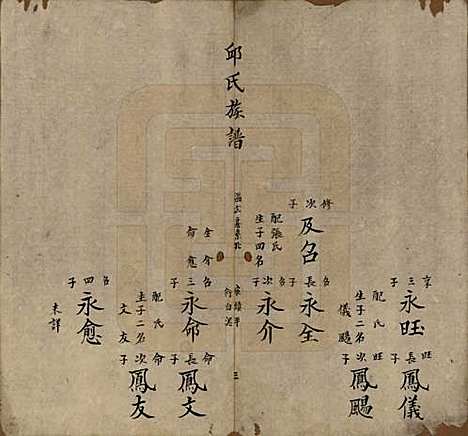 邱氏族譜
三
享三子
永旺
配氏
生子二名
儀颺
旺長子
鳳儀
旺次子
鳳颺
修次子
及名
配張氏
生子四名
全介命愈
名長子
永全
名次子
永介
名三子
永命
配氏
生子二名
文友
命長子
鳳文
命次子
鳳友
名四子
永愈
未詳